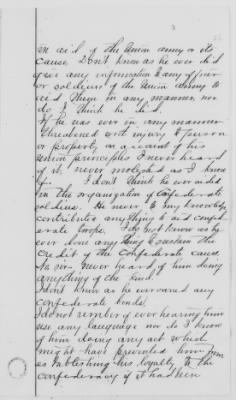 in aid of the Union army or its
cause. Dont know as he ever did
give any information to any officer
or soldiers of the Union Army to
aid them in any manner nor
do I think he did.
If he was ever in any manner
threatened with injury to person
or property on account of his
union principles I never heard
of it, never molested as I know
of. I dont think he ever aided
in the organization of Confederate
soldiers. He never to my knowledge
contributed anything to aid confed-
erate troops. I do not know as he
ever done anything to sustain the
credit of the Confederate cause.
never heard of him doing
anything of the kind.
I dont know as he ever owned any
Confederate bonds.
I do not remember of ever hearing him
use any language nor do I know
of him doing any act which
might have prevented him from
establishing his loyalty to the
confederacy if it had been